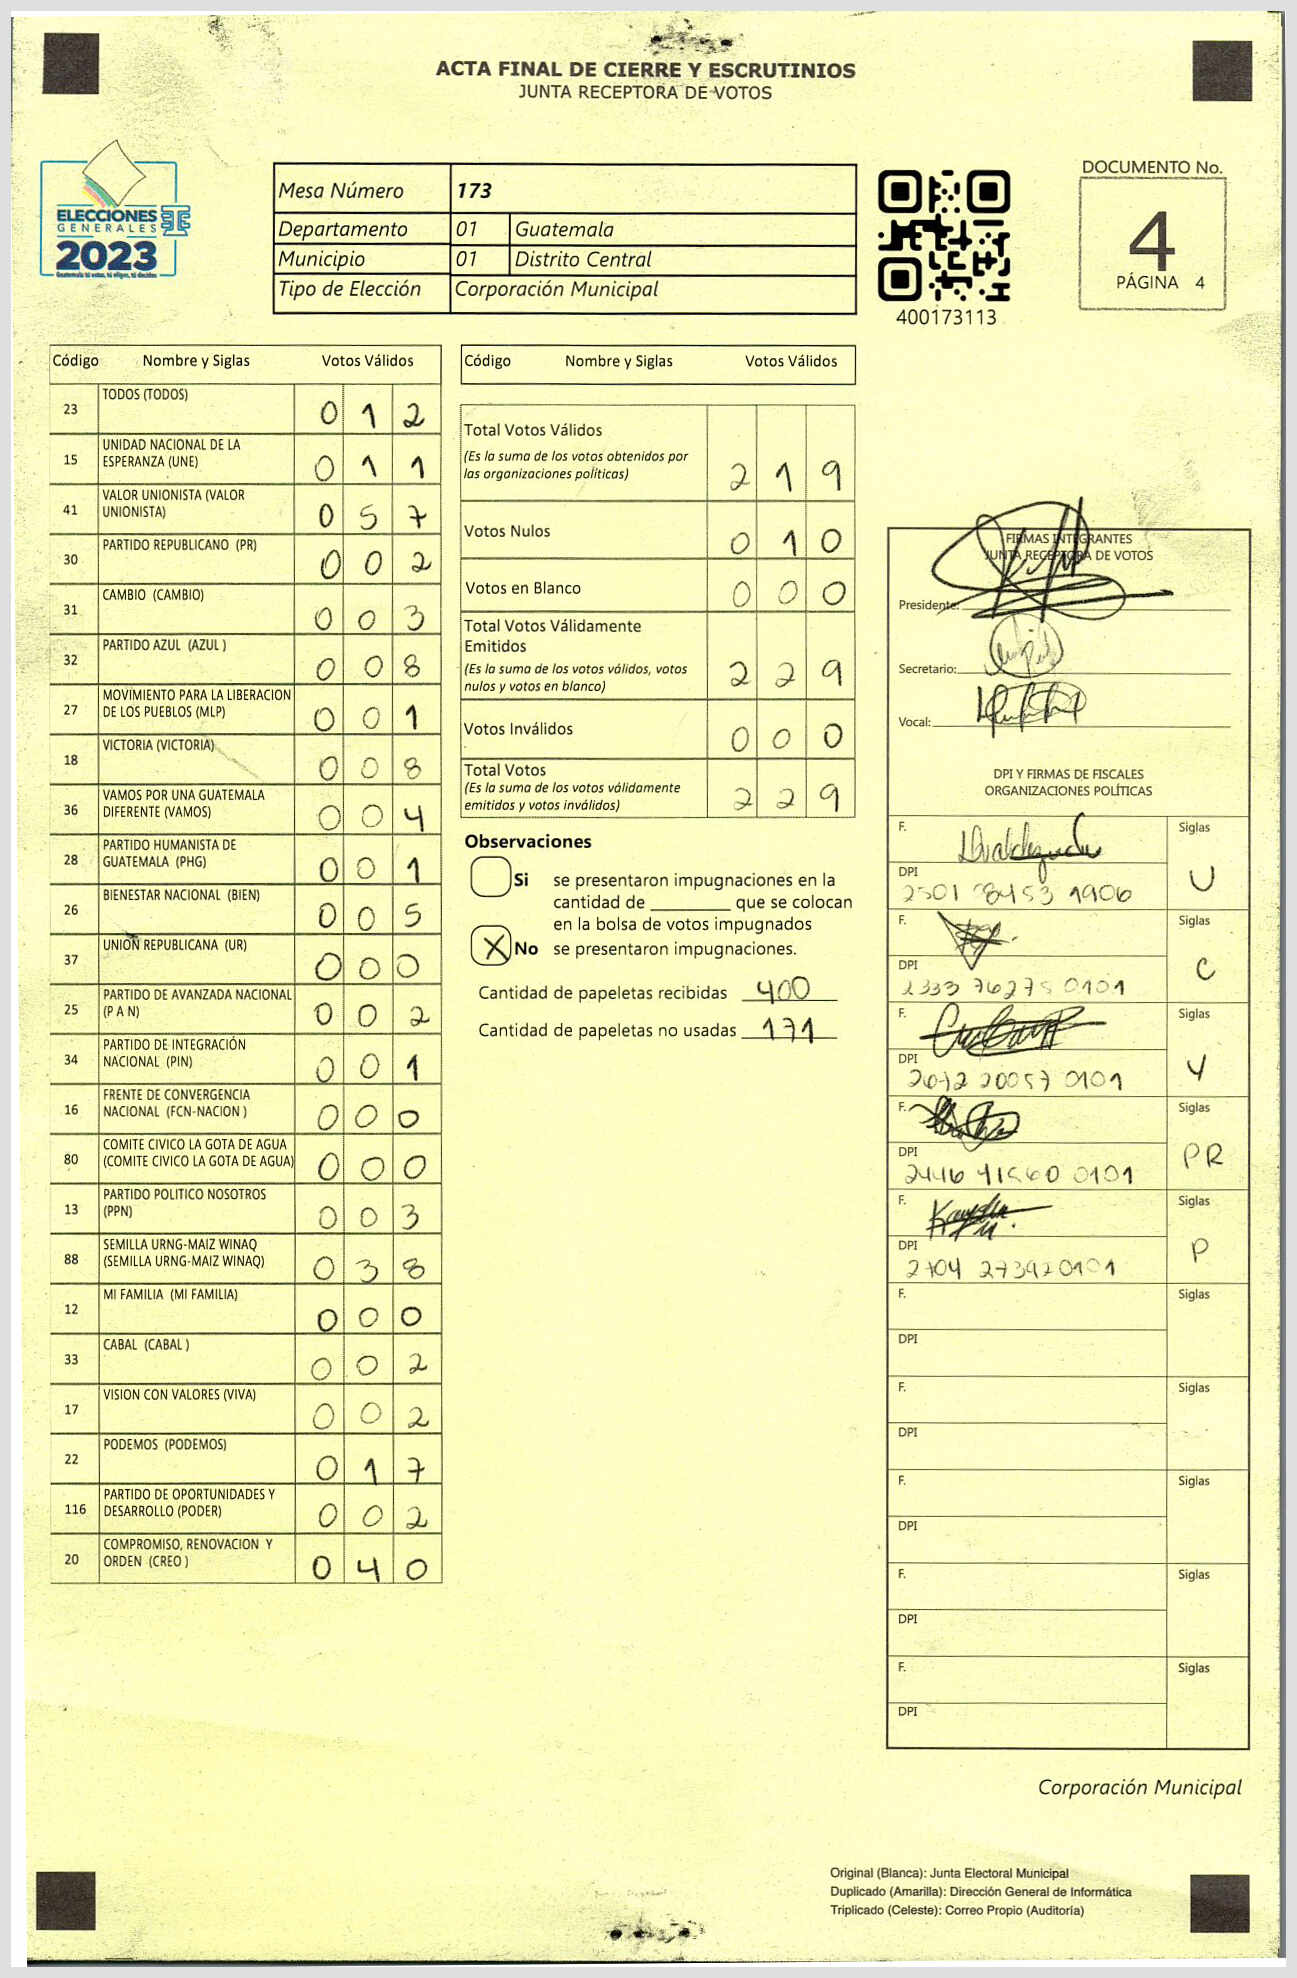 ACTA FINAL DE CIERRE Y ESCRUTINIOS
JUNTA RECEPTORA DE VOTOS
ELECCIONES
GENERALES
2023
Guatemala tú votas, tú eliges, tú decides
Mesa Número 173
Departamento 01 Guatemala
Municipio 01 Distrito Central
Tipo de Elección Corporación Municipal
400173113
DOCUMENTO No.
4
PÁGINA 4
Código Nombre y Siglas Votos Válidos
23 TODOS (TODOS) 0 1 2
15 UNIDAD NACIONAL DE LA
ESPERANZA (UNE) 0 1 1
41 VALOR UNIONISTA (VALOR
UNIONISTA) 0 5 7
30 PARTIDO REPUBLICANO (PR) 0 0 2
31 CAMBIO (CAMBIO) 0 0 3
32 PARTIDO AZUL (AZUL ) 0 0 8
27 MOVIMIENTO PARA LA LIBERACION
DE LOS PUEBLOS (MLP) 0 0 1
18 VICTORIA (VICTORIA) 0 0 8
36 VAMOS POR UNA GUATEMALA
DIFERENTE (VAMOS) 0 0 4
28 PARTIDO HUMANISTA DE
GUATEMALA (PHG) 0 0 1
26 BIENESTAR NACIONAL (BIEN) 0 0 5
37 UNION REPUBLICANA (UR) 0 0 0
25 PARTIDO DE AVANZADA NACIONAL
(P A N) 0 0 2
34 PARTIDO DE INTEGRACIÓN
NACIONAL (PIN) 0 0 1
16 FRENTE DE CONVERGENCIA
NACIONAL (FCN-NACION ) 0 0 0
80 COMITE CIVICO LA GOTA DE AGUA
(COMITE CIVICO LA GOTA DE AGUA) 0 0 0
13 PARTIDO POLITICO NOSOTROS
(PPN) 0 0 3
88 SEMILLA URNG-MAIZ WINAQ
(SEMILLA URNG-MAIZ WINAQ) 0 3 8
12 MI FAMILIA (MI FAMILIA) 0 0 0
33 CABAL (CABAL ) 0 0 2
17 VISION CON VALORES (VIVA) 0 0 2
22 PODEMOS (PODEMOS) 0 1 7
116 PARTIDO DE OPORTUNIDADES Y
DESARROLLO (PODER) 0 0 2
20 COMPROMISO, RENOVACION Y
ORDEN (CREO ) 0 4 0
Código Nombre y Siglas Votos Válidos
Total Votos Válidos
(Es la suma de los votos obtenidos por
las organizaciones políticas) 2 1 9
Votos Nulos 0 1 0
Votos en Blanco 0 0 0
Total Votos Válidamente
Emitidos
(Es la suma de los votos válidos, votos
nulos y votos en blanco) 2 2 9
Votos Inválidos 0 0 0
Total Votos
(Es la suma de los votos válidamente
emitidos y votos inválidos) 2 2 9
Observaciones
Si se presentaron impugnaciones en la
cantidad de ________ que se colocan
en la bolsa de votos impugnados
X No se presentaron impugnaciones.
Cantidad de papeletas recibidas 400
Cantidad de papeletas no usadas 171
FIRMAS INTEGRANTES
JUNTA RECEPTORA DE VOTOS
Presidente:
Secretario:
Vocal:
DPI Y FIRMAS DE FISCALES
ORGANIZACIONES POLÍTICAS
F. Siglas
DPI U
2501 78453 1906
F. Siglas
DPI C
2333 76275 0101
F. Siglas
DPI Y
20057 0101
F. Siglas
DPI PR
2446 0101
F. Siglas
DPI P
2704 273920101
F. Siglas
DPI
F. Siglas
DPI
F. Siglas
DPI
F. Siglas
DPI
F. Siglas
DPI
Corporación Municipal
Original (Blanca): Junta Electoral Municipal
Duplicado (Amarilla): Dirección General de Informática
Triplicado (Celeste): Correo Propio (Auditoría)